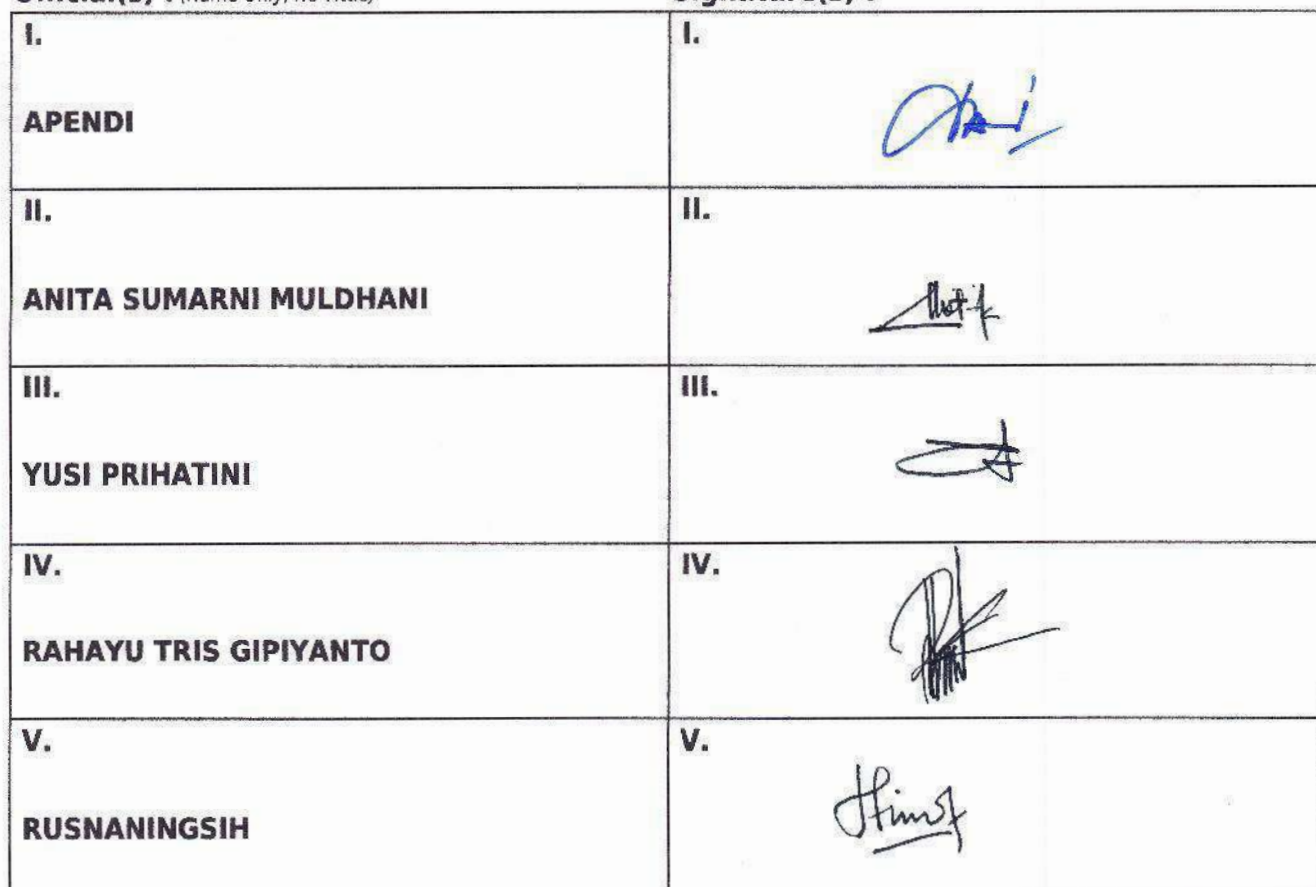 I. I.
APENDI
II. II.
ANITA SUMARNI MULDHANI
III. III.
YUSI PRIHATINI
IV. IV.
RAHAYU TRIS GIPIYANTO
V. V.
RUSNANINGSIH